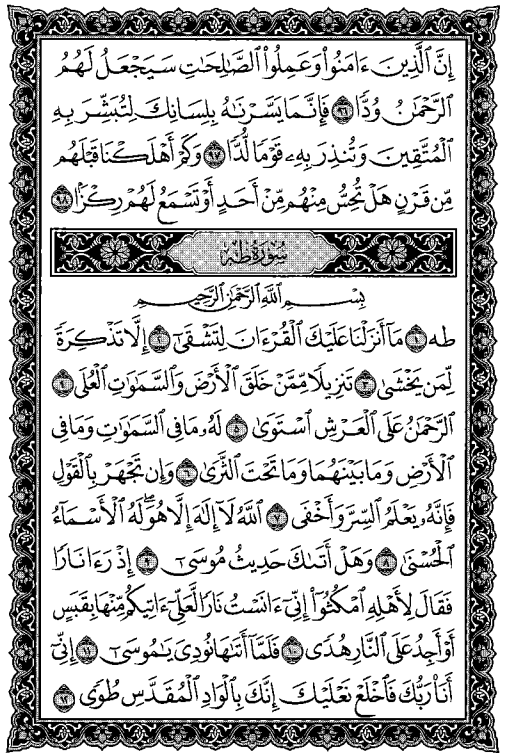 إِنَّ الَّذِينَ ءَامَنُواْ وَعَمِلُواْ الصَّالِحَاتِ سَيَجْعَلُ لَهُمُ
الرَّحْمَانُ وُدًّا ٩٦ فَإِنَّمَا يَسَّرْنَاهُ بِلِسَانِكَ لِتُبَشِّرَ بِهِ
الْمُتَّقِينَ وَتُنذِرَ بِهِۦ قَوْمًا لُّدًّا ٩٧ وَكَمْ أَهْلَكْنَا قَبْلَهُم
مِّن قَرْنٍ هَلْ تُحِسُّ مِنْهُم مِّنْ أَحَدٍ أَوْ تَسْمَعُ لَهُمْ رِكْزًا ٩٨
سُورَةُ طه
بِسْمِ اللَّهِ الرَّحْمَٰنِ الرَّحِيمِ
طه ١ مَآ أَنزَلْنَا عَلَيْكَ الْقُرْءَانَ لِتَشْقَىٰٓ ٢ إِلَّا تَذْكِرَةً
لِّمَن يَخْشَىٰ ٣ تَنزِيلًا مِّمَّنْ خَلَقَ الْأَرْضَ وَالسَّمَٰوَٰتِ الْعُلَى ٤
الرَّحْمَٰنُ عَلَى الْعَرْشِ اسْتَوَىٰ ٥ لَهُۥ مَا فِى السَّمَٰوَٰتِ وَمَا فِى
الْأَرْضِ وَمَا بَيْنَهُمَا وَمَا تَحْتَ الثَّرَىٰ ٦ وَإِن تَجْهَرْ بِالْقَوْلِ
فَإِنَّهُۥ يَعْلَمُ السِّرَّ وَأَخْفَى ٧ اللَّهُ لَآ إِلَٰهَ إِلَّا هُوَ ۖ لَهُ الْأَسْمَآءُ
الْحُسْنَىٰ ٨ وَهَلْ أَتَىٰكَ حَدِيثُ مُوسَىٰٓ ٩ إِذْ رَءَا نَارًا
فَقَالَ لِأَهْلِهِ امْكُثُوٓاْ إِنِّىٓ ءَانَسْتُ نَارًا لَّعَلِّىٓ ءَاتِيكُم مِّنْهَا بِقَبَسٍ
أَوْ أَجِدُ عَلَى النَّارِ هُدًى ١٠ فَلَمَّآ أَتَىٰهَا نُودِىَ يَٰمُوسَىٰٓ ١١ إِنِّىٓ
أَنَا۠ رَبُّكَ فَاخْلَعْ نَعْلَيْكَ إِنَّكَ بِالْوَادِ الْمُقَدَّسِ طُوًى ١٢